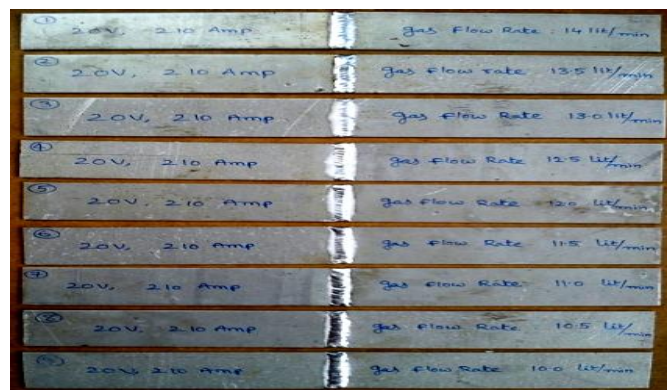 ① 20V, 210 Amp gas Flow Rate : 14 lit/min
② 20V, 210 Amp gas Flow rate : 13.5 lit/min
③ 20V, 210 Amp gas Flow Rate 13.0 lit/min
④ 20V, 210 Amp gas Flow Rate 12.5 lit/min
⑤ 20V, 210 Amp gas Flow Rate 12.0 lit/min
⑥ 20V, 210 Amp gas Flow Rate 11.5 lit/min
⑦ 20V, 210 Amp gas Flow Rate 11.0 lit/min
⑧ 20V, 210 Amp gas Flow Rate 10.5 lit/min
⑨ 20V, 210 Amp gas Flow Rate 10.0 lit/min